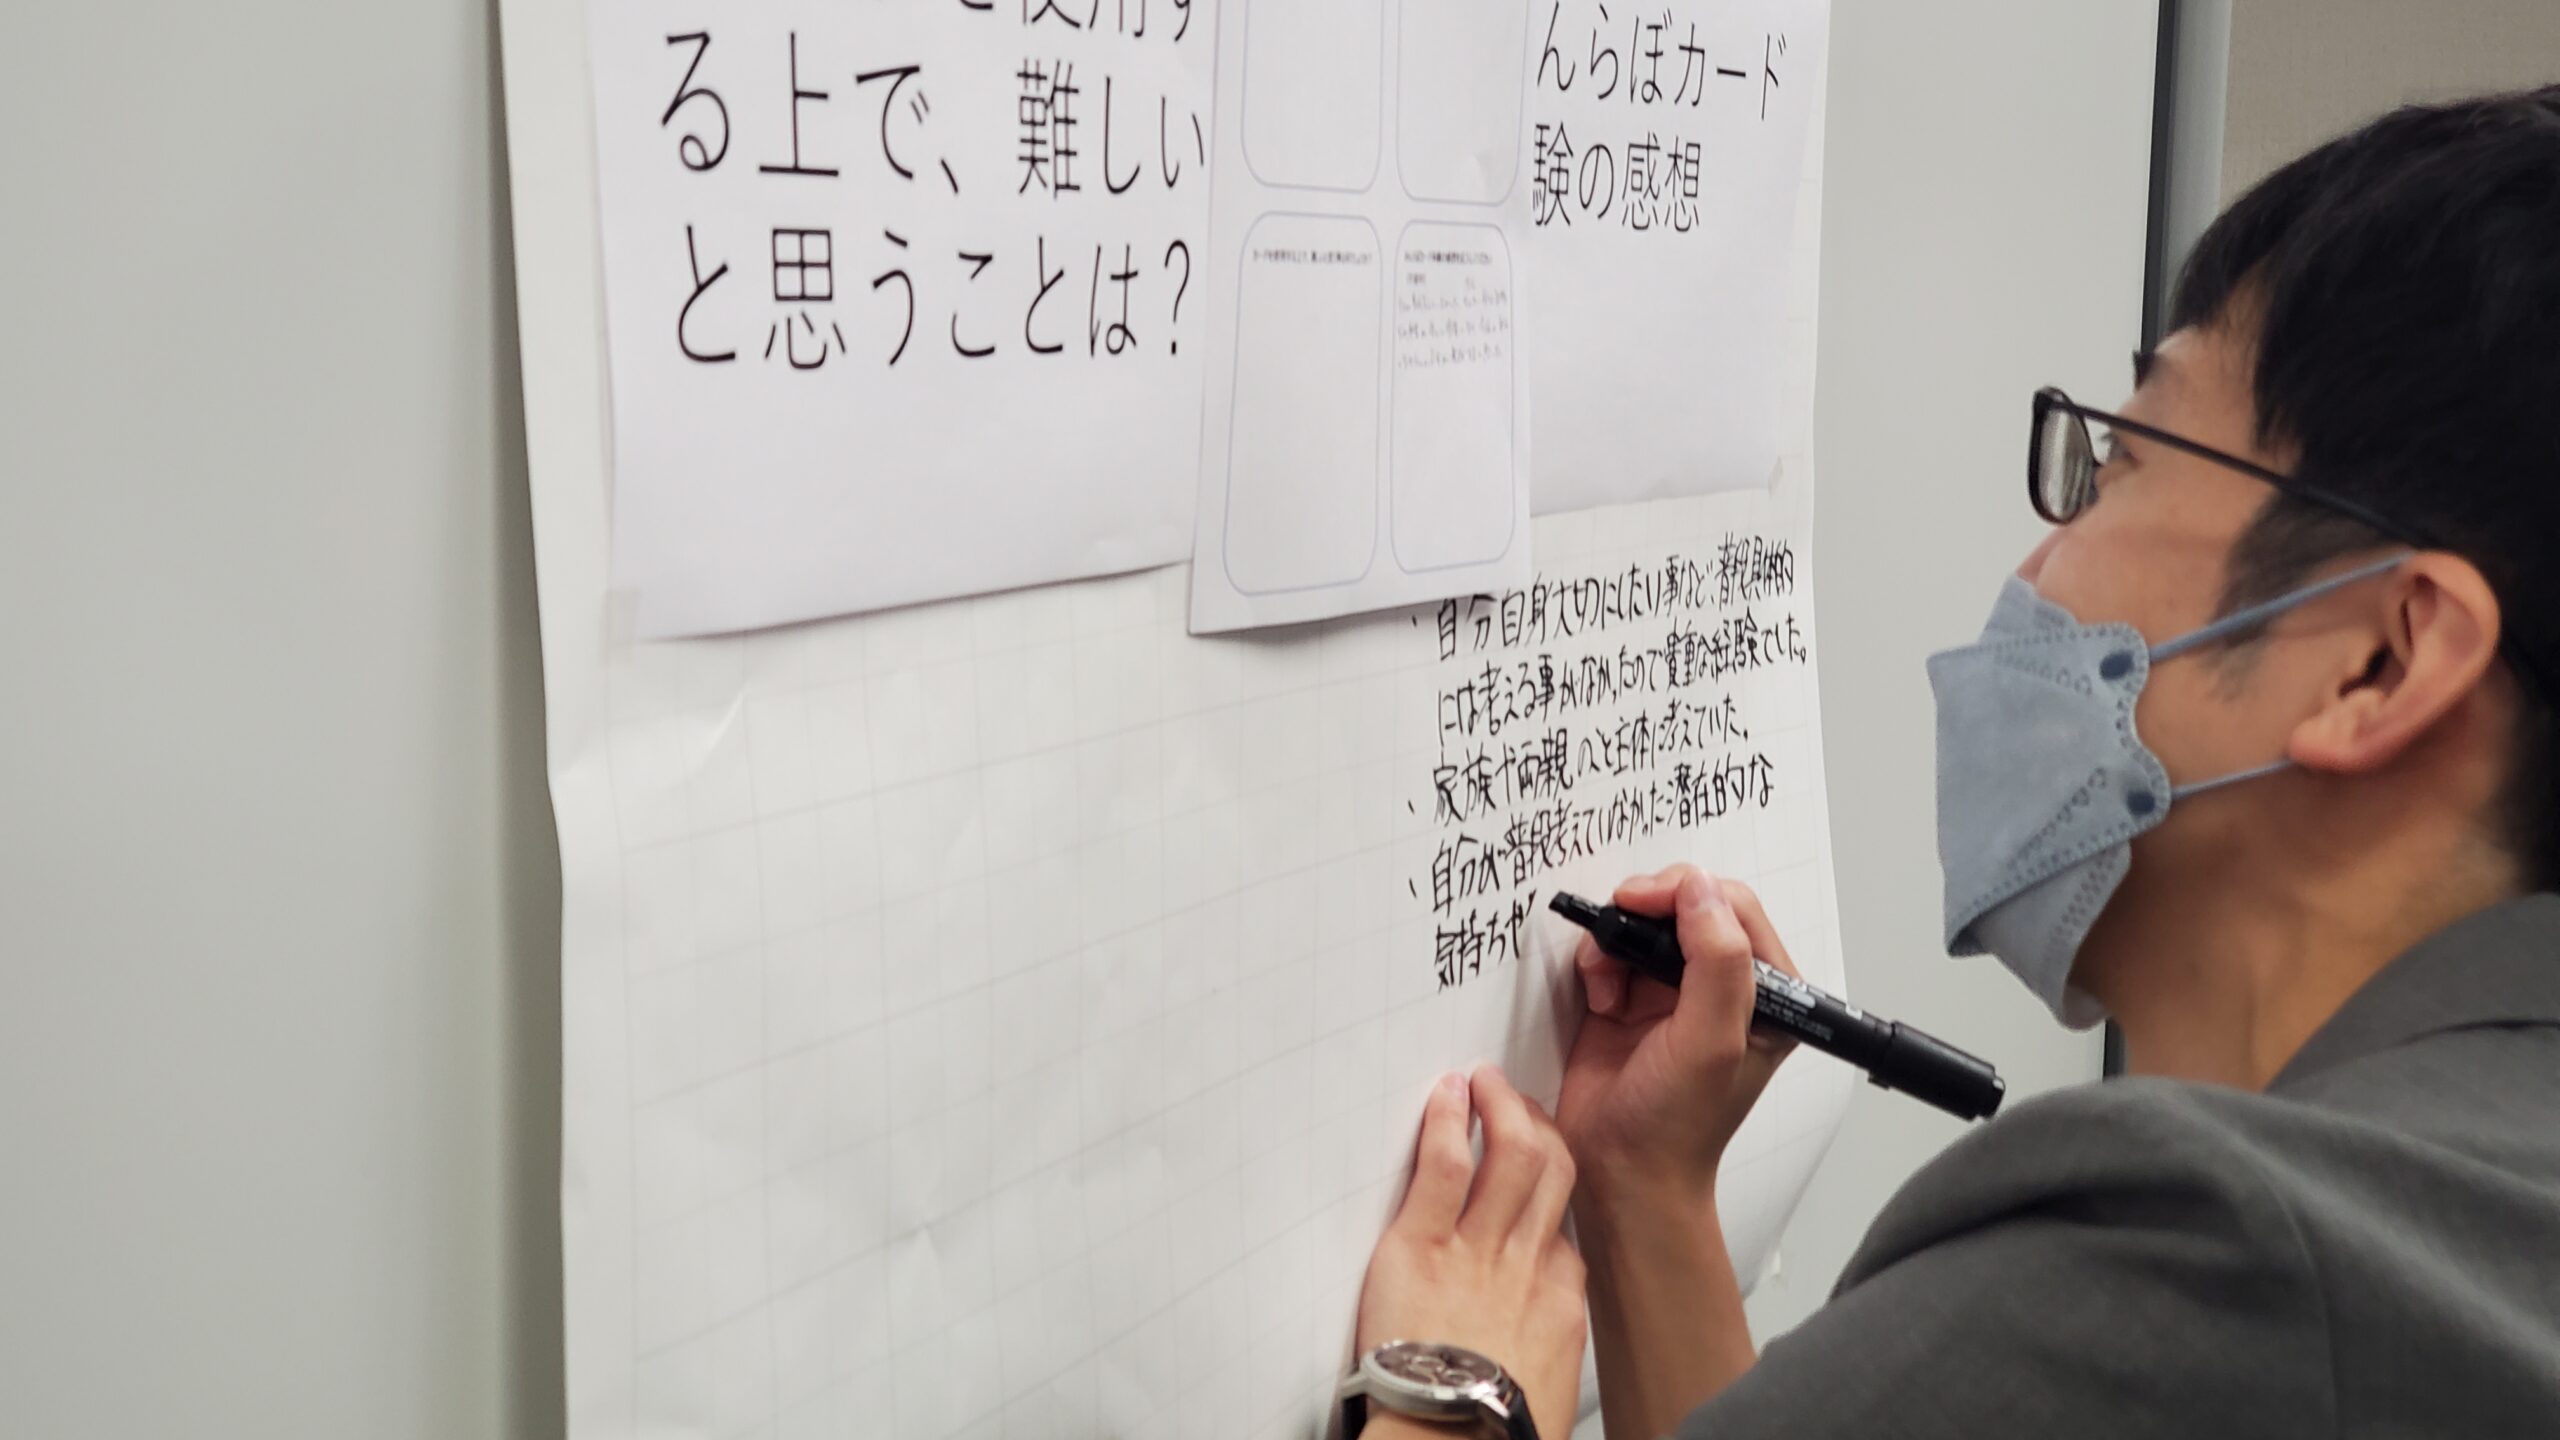 使用す
る上で、難しい
と思うことは?
んらぼカード
験の感想
・自分自身大切にしたい事など、普段具体的
には考える事がなかったので貴重な経験でした。
・家族や両親のと主体に考えていた。
・自分が普段考えていなかった潜在的な
気持ちや